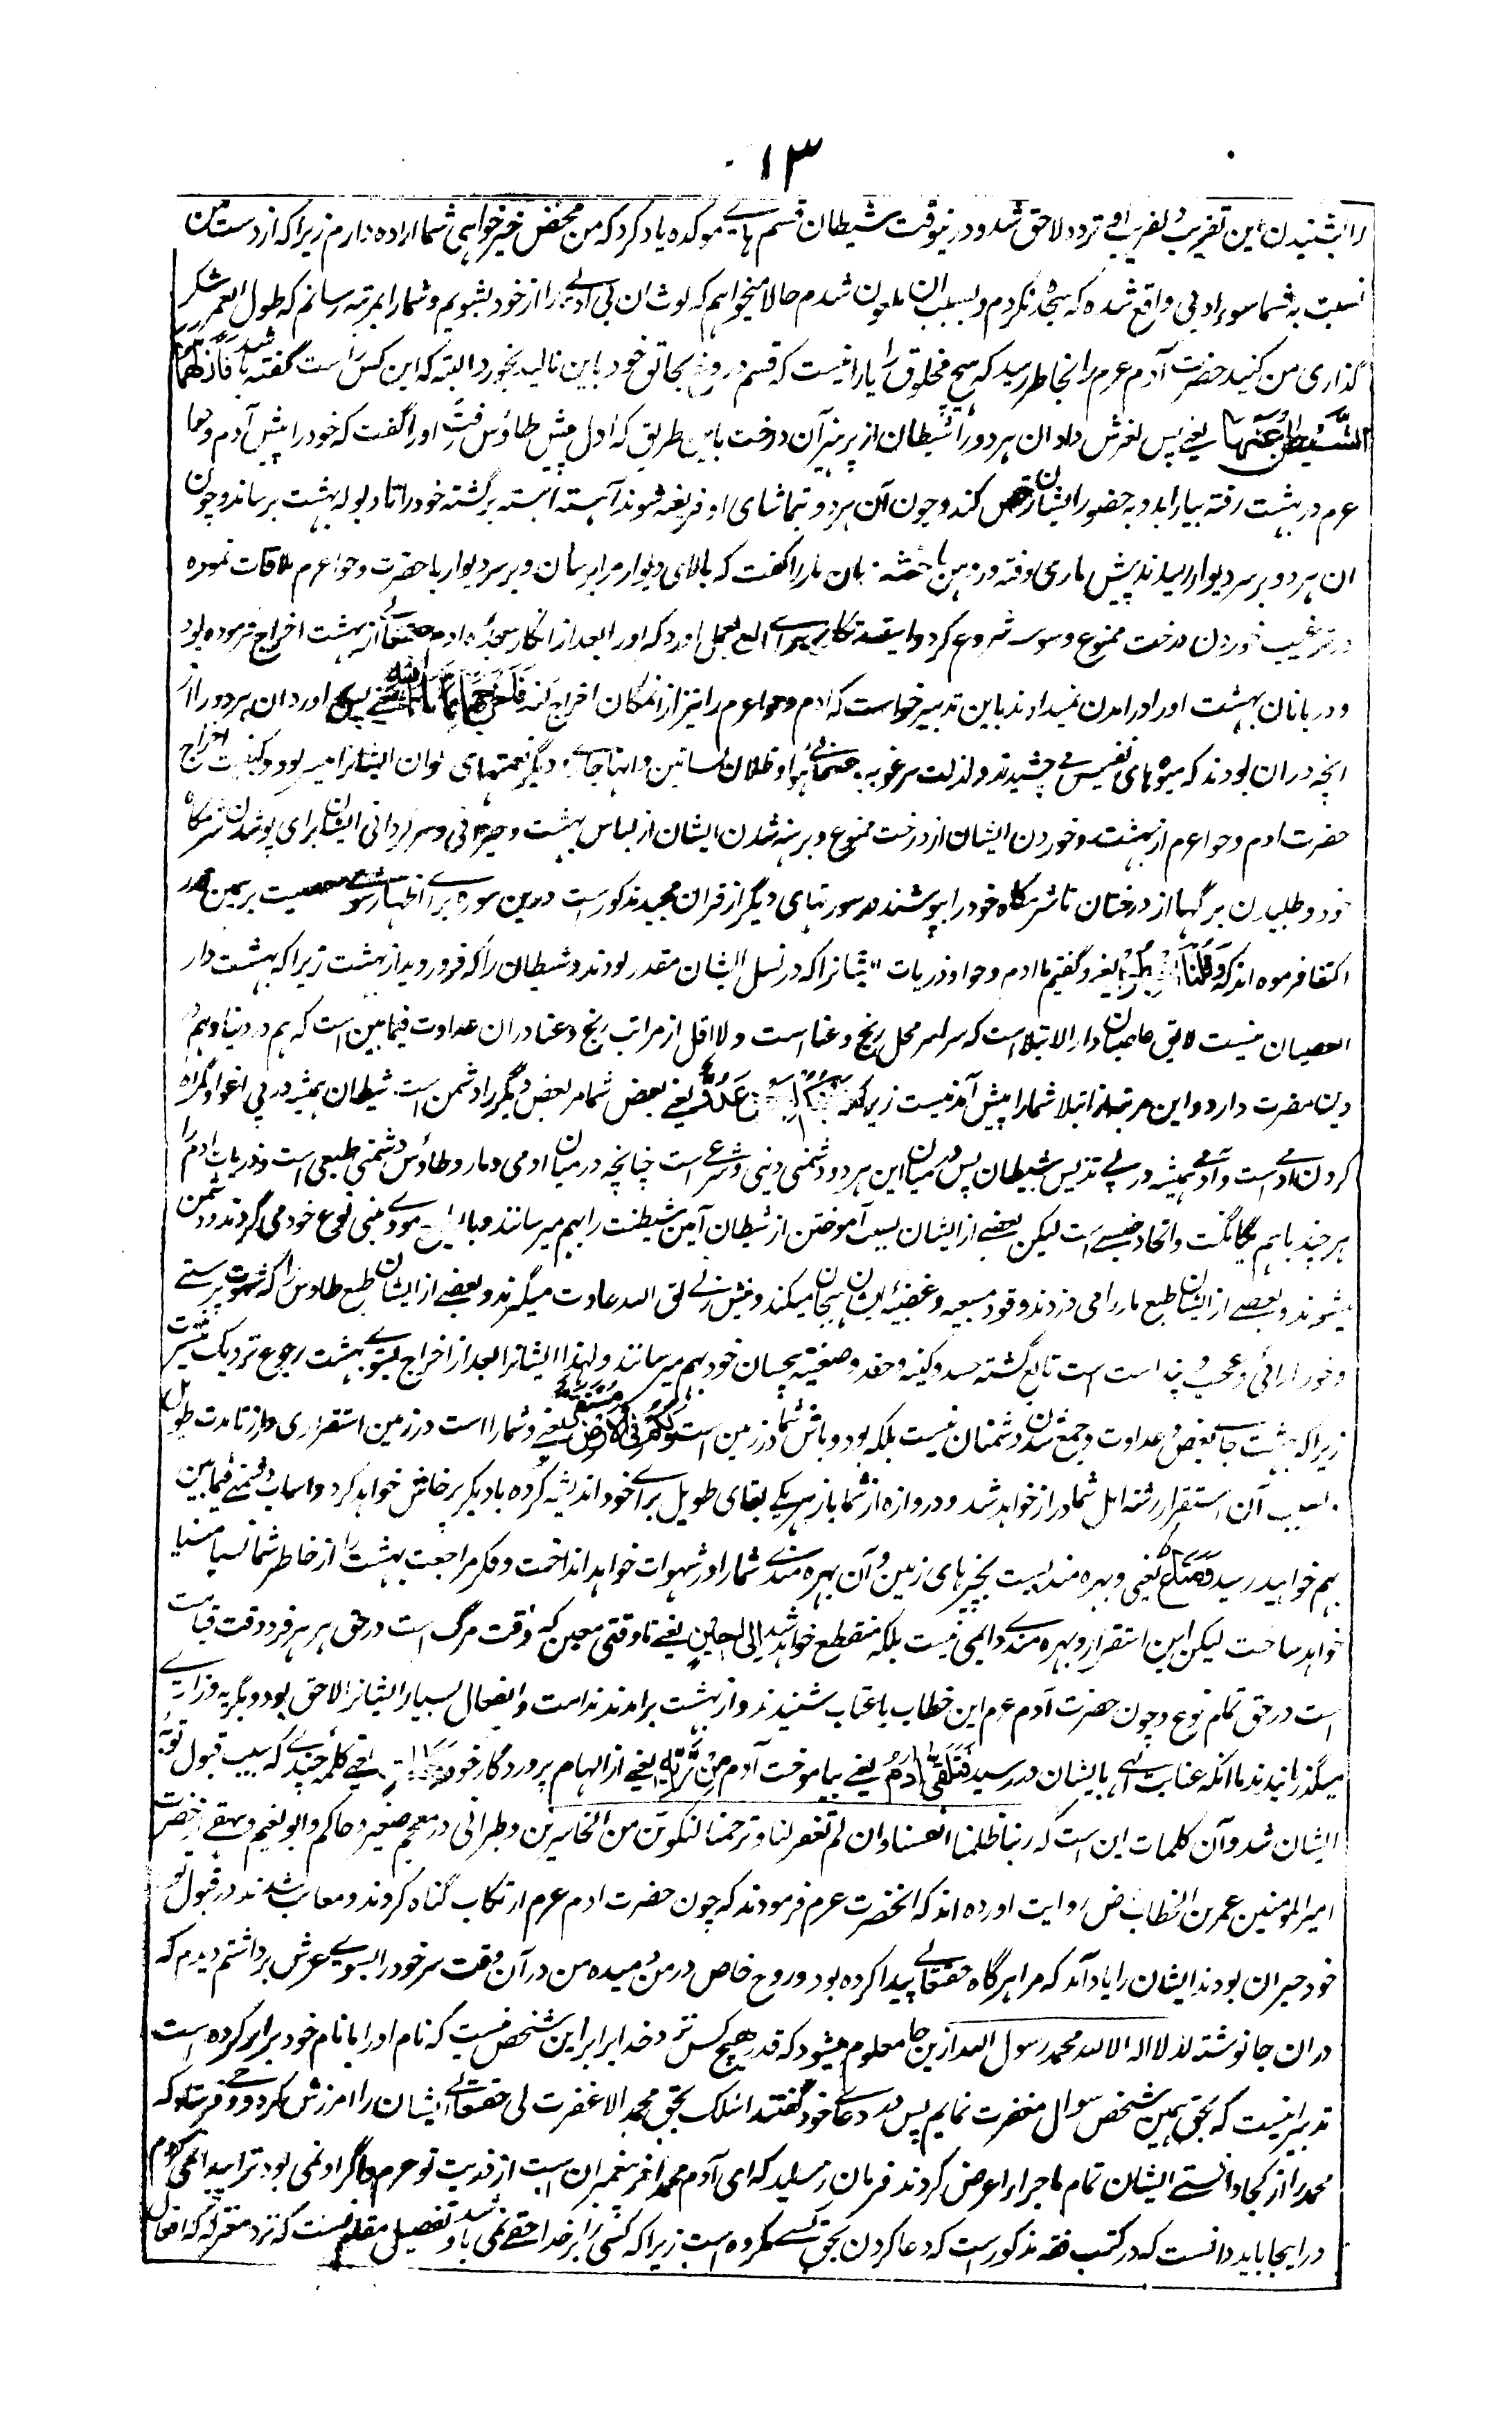 ۱۳
را بشنیدن این تقریب و لفریب او تردد لاحق شد و درینوقت شیطان قسم هاے موکده یاد کرد که من محض خیرخواهی شما اراده دارم زیرا که از دست من
نسبت به شما سوء ادبی واقع شده که سجده نکردم و بسبب ان ملعون شدم حالا میخواهم که لوث ان بی ادبی را از خود بشویم و شما را بمرتبه رسانم که طول العمر شکر
گذاری من کنید حضرت آدم عرم را بخاطر رسید که هیچ مخلوق را یارا نیست که قسم دروغ بخالق خود باین تاکید بخورد البته که این کس راست گفته باشد فَاَزَلَّهُمَا
الشَّیْطٰنُ عَنْهَا یعنے پس لغزش داد ان هر دو را شیطان از پرهیز آن درخت باین طریق که اول پیش طاؤس رفت و او را گفت که خود را پیش آدم و حوا
عرم در بهشت رفته بیاراید و به حضور ایشان رقص کند و چون آن هر دو بتماشای او فریفته شوند آهسته اهسته برگشته خود را تا دیوار بهشت برساند و چون
ان هر دو بر سر دیوار رسیدند پیش ماری رفته در دهن بان مار را گفت که بالای دیوار مرا برسان و بر سر دیوار با حضرت و حوا عرم ملاقات نموده
در ترغیب خوردن درخت ممنوع وسوسه شروع کرد و اینقدر براے بعمل اورد که او را بعد از انکار سجدهٔ ادم حقتعالے از بهشت اخراج فرموده بود
و دربانان بهشت او را در امدن نمیدادند باین تدبیر خواست که ادم و حوا عرم را نیز از انمکان اخراج کند فَاَخْرَجَهُمَا مِمَّا کَانَا فِیْهِ یعنے پس اورد ان هر دو را از
انچه دران بودند که میوهای نفیس مے چشیدند و لذات مرغوبه جسمانی و دیگر نعمتهای الوان ایشانرا میسر بود و کیفیت اخراج
حضرت ادم و حوا عرم از بهشت و خوردن ایشان از درخت ممنوع و برهنه شدن ایشان از لباس بهشت و حیرانی و سرگردانی ایشان برای پوشیدن شرمگاه
خود و طلبیدن برگها از درختان تا شرمگاه خود را بپوشند در سورتهای دیگر از قران مجید مذکور است درین سوره براے اظهار شومے معصیت بر همین قدر
اکتفا فرموده اند که وَقُلْنَا اهْبِطُوْا یعنے و گفتیم ما ادم و حوا و ذریات ایشانرا که در نسل ایشان مقدر بودند و شیطان را که فرو روید از بهشت زیرا که بهشت دار
العصیان نیست لایق عاصیان دار الابتلا است که سراسر محل رنج و عنا است و لا اقل از مراتب رنج و عنا دران عداوت فیمابین است که هم در دنیا و هم در
دین مضرت دارد و این مرتبه از ابتلا شما را پیش آمدنیست زیرا که بَعْضُکُمْ لِبَعْضٍ عَدُوٌّ یعنے بعض شما مر بعض دیگر را دشمن است شیطان همیشه در پی اغوا و گمراه
کردن آدمے است و آدمی همیشه در پے شیطان پس در میان این هر دو دشمنی دینی و شرعے است چنانچه در میان ادمی و مار و طاؤس دشمنی طبعی است و ذریات ادم را
هر چند باهم یگانگت و اتحاد جنسے است لیکن بعضے از ایشان بسبب آموختن از شیطان آیین شیطنت را بهم میرسانند و موذے بنی نوع خود می گردند و دشمن
میشوند و بعضے از ایشان طبع مار را می دزدند و قوت سبعیه و غضبیه ایشان هیجان میکند و نیش زنے خلق الله عادت میگیرند و بعضے از ایشان طبع طاوس را که شهوت پرستے
و خود ارائی و عجب و پنداست است تابع گشته حسد و کینه و حقد و بهم میرسانند و لهذا ایشانرا بعد از اخراج بسوے بهشت رجوع نزدیک نیست
زیرا که بهشت جاے بغض و عداوت و جمع شدن دشمنان نیست بلکه بود و باش شما در زمین است وَلَکُمْ فِی الْاَرْضِ مُسْتَقَرٌّ یعنے و شما را است در زمین استقراری دراز تا مدت طویل
بسبب آن استقرار رشته امل شما دراز خواهد شد و دروازه از شما باز هر یکے بقای طویل براے خود اندیشه کرده با دیگر پرخاش خواهد کرد و اسباب دشمنے فیمابین
بهم خواهید رسید وَمَتَاعٌ یعنی و بهره مندیست بچیزهای زمین و آن بهره مندے شما را در شهوات خواهد انداخت و فکر مراجعت بهشت را از خاطر شما نسیا منسیا
خواهد ساخت لیکن این استقرار و بهره مندے دایمی نیست بلکه منقطع خواهد شد اِلٰی حِیْنٍ یعنے تا وقتی معین که وقت مرگ است در حق هر هر فرد و وقت قیامت
است در حق تمام نوع و چون حضرت آدم عرم این خطاب با عتاب شنیدند و از بهشت برامدند ندامت و انفعال بسیار ایشانرا لاحق بود و بگریه و زاریے
میگذرانیدند تا انکه عنایت الٰهی بایشان در رسید فَتَلَقّٰی اٰدَمُ یعنے بیاموخت آدم مِنْ رَّبِّهٖ یعنے از الهام پروردگار خود کَلِمَاتٍ یعنے کلمهٔ چندے که سبب قبول توبه
ایشان شد و آن کلمات این است که ربنا ظلمنا انفسنا و ان لم تغفر لنا و ترحمنا لنکونن من الخاسرین و طبرانی در معجم صغیر و حاکم و ابو نعیم و بیهقے از حضرت
امیر المومنین عمر بن الخطاب رض روایت اورده اند که انحضرت عرم فرمودند که چون حضرت ادم عرم ارتکاب گناه کردند و معاتب شدند در قبول توبهٔ
خود حیران بودند ایشان را یاد آمد که مرا هرگاه حقتعالے پیدا کرده بود و روح خاص در من دمیده من در آن وقت سر خود را بسوے عرش برداشتم دیدم که
در ان جا نوشته اند لا اله الا الله محمد رسول الله ازین جا معلوم میشود که قدر هیچ کس نزد خدا برابر این شخص نیست که نام او را با نام خود برابر کرده است
تدبیر اینست که بحق همین شخص سوال مغفرت نمایم پس در دعاے خود گفتند اسئلک بحق محمد الا غفرت لی حقتعالے ایشان را امرزش کرد و وحے فرستاد که
محمد را از کجا دانستے ایشان تمام ماجرا را عرض کردند فرمان رسید که ای آدم محمد اخر پیغمبران است از ذریت تو عرم و اگر او نمی بود ترا پیدا نمی کردم
درا ینجا باید دانست که در کتب فقه مذکور است که دعا کردن بحق کسے مکروه است زیرا که کسی را بر خدا حقے نمی باشد و تفصیل مقام اینست که نزد معتزله که افعال